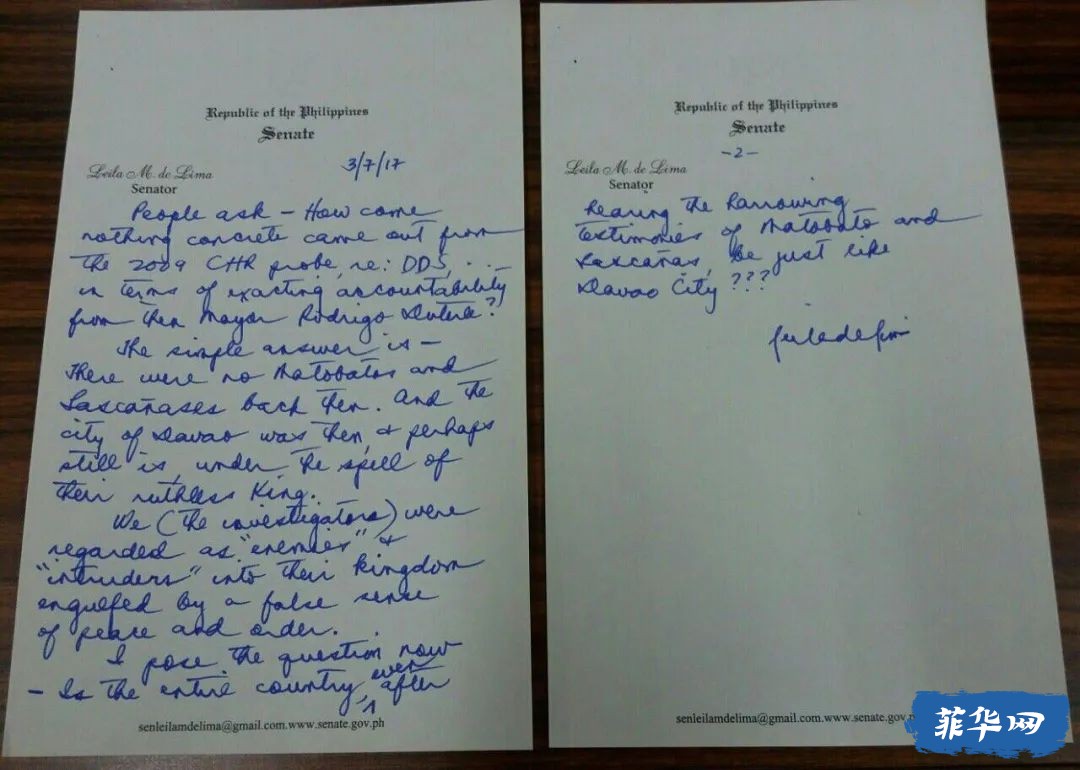 Republic of the Philippines
Senate
3/7/17
Leila M. de Lima
Senator
People ask – How come
nothing concrete came out from
the 2009 CHR probe, re: DDS, . .
in terms of exacting accountability
from then Mayor Rodrigo Duterte?
The simple answer is –
There were no Matobatos and
Lascañases back then. And the
city of Davao was then, & perhaps
still is, under the spell of
their ruthless King.
We (the investigators) were
regarded as "enemies" &
"intruders" into their kingdom
engulfed by a false sense
of peace and order.
I pose the question now
– Is the entire country, even after
senleilamdelima@gmail.com.www.senate.gov.ph
Republic of the Philippines
Senate
-2-
Leila M. de Lima
Senator
hearing the harrowing
testimonies of Matobato and
Lascañas, be just like
Davao City ???
senleilamdelima@gmail.com.www.senate.gov.p
菲华网